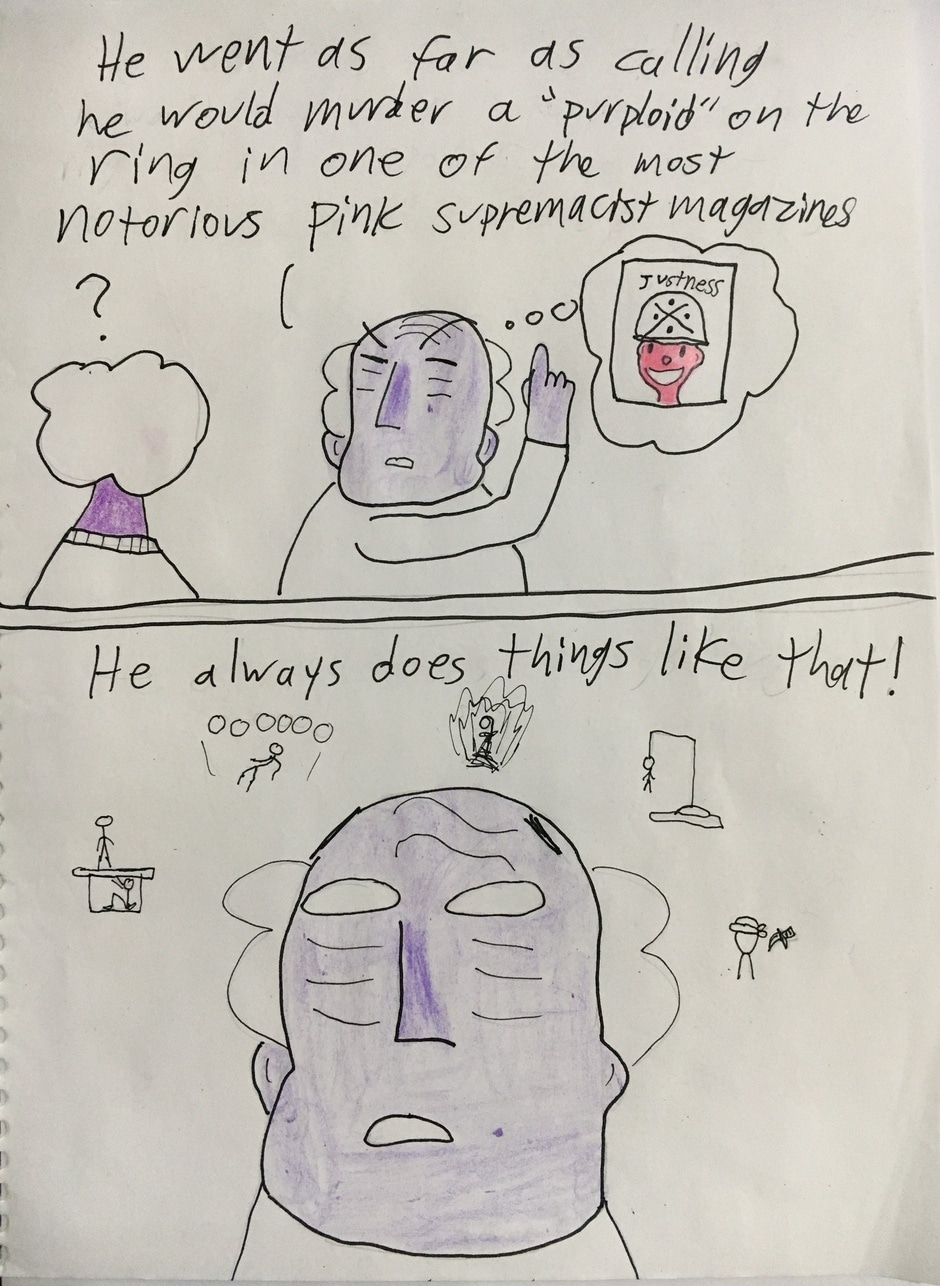 He went as far as calling
he would murder a "purploid" on the
ring in one of the most
notorious pink supremacist magazines
?
Justness
He always does things like that!